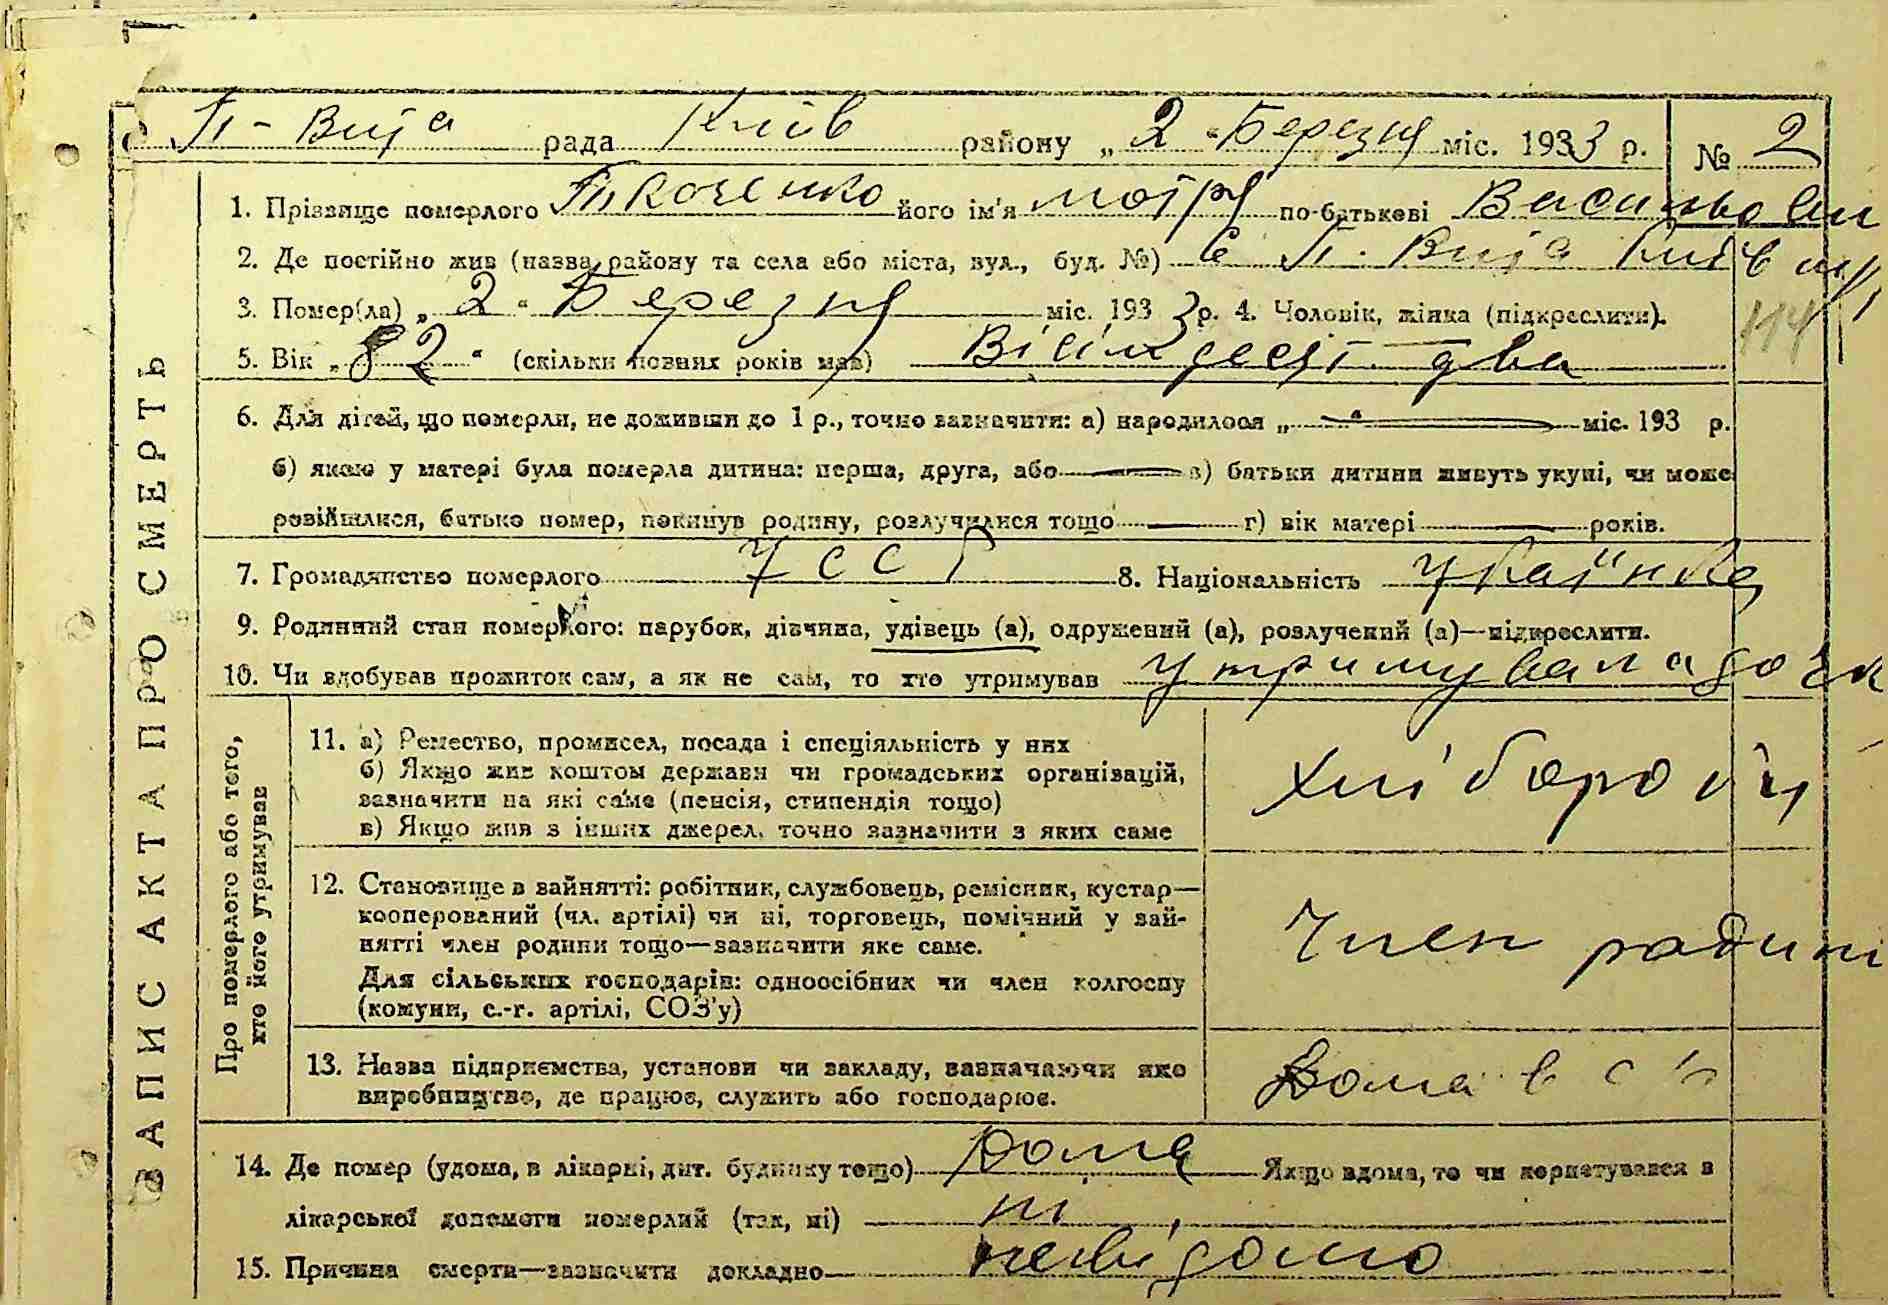 П-Вија рада Київ району „2“ Березня міс. 1933 р. № 2
1. Прізвище померлого Ткаченко його ім'я Мотря по-батькові Васильовн
2. Де постійно жив (назва району та села або міста, вул., буд. №) в П. Вија Київ
3. Помер(ла) „2“ Березня міс. 1933 р. 4. Чоловік, жінка (підкреслити).
114
5. Вік „82“ (скільки повних років мав) Вісімдесят два
6. Для дітей, що померли, не доживши до 1 р., точно зазначити: а) народилося „ “ міс. 193 р.
б) якою у матері була померла дитина: перша, друга, або в) батьки дитини живуть укупі, чи може
розвійшлися, батько помер, покинув родину, розлучилися тощо г) вік матері років.
7. Громадянство померлого УССР 8. Національність Українка
9. Родинний стан померлого: парубок, дівчина, удівець (а), одружений (а), розлучений (а)—підкреслити.
10. Чи здобував прожиток сам, а як не сам, то хто утримував утримувала дочк
ЗАПИС АКТА ПРО СМЕРТЬ
Про померлого або того,
хто його утримував
11. а) Ремество, промисел, посада і спеціяльність у них
б) Якщо жив коштом держави чи громадських організацій,
зазначити на які саме (пенсія, стипендія тощо)
в) Якщо жив з інших джерел, точно зазначити з яких саме
хліборобц
12. Становище в зайнятті: робітник, службовець, ремісник, кустар—
кооперований (чл. артілі) чи ні, торговець, помічний у зай-
нятті член родини тощо—зазначити яке саме.
Для сільських господарів: одноосібник чи член колгоспу
(комуни, с.-г. артілі, СОЗ'у)
Член родини
13. Назва підприємства, установи чи закладу, зазначаючи яко
виробництво, де працює, служить або господарює.
Дома в с/г
14. Де помер (удома, в лікарні, дит. будинку тощо) Дома Якщо вдома, то чи користувався з
лікарської допомоги померлий (так, ні) ні
15. Причина смерти—зазначити докладно невідомо